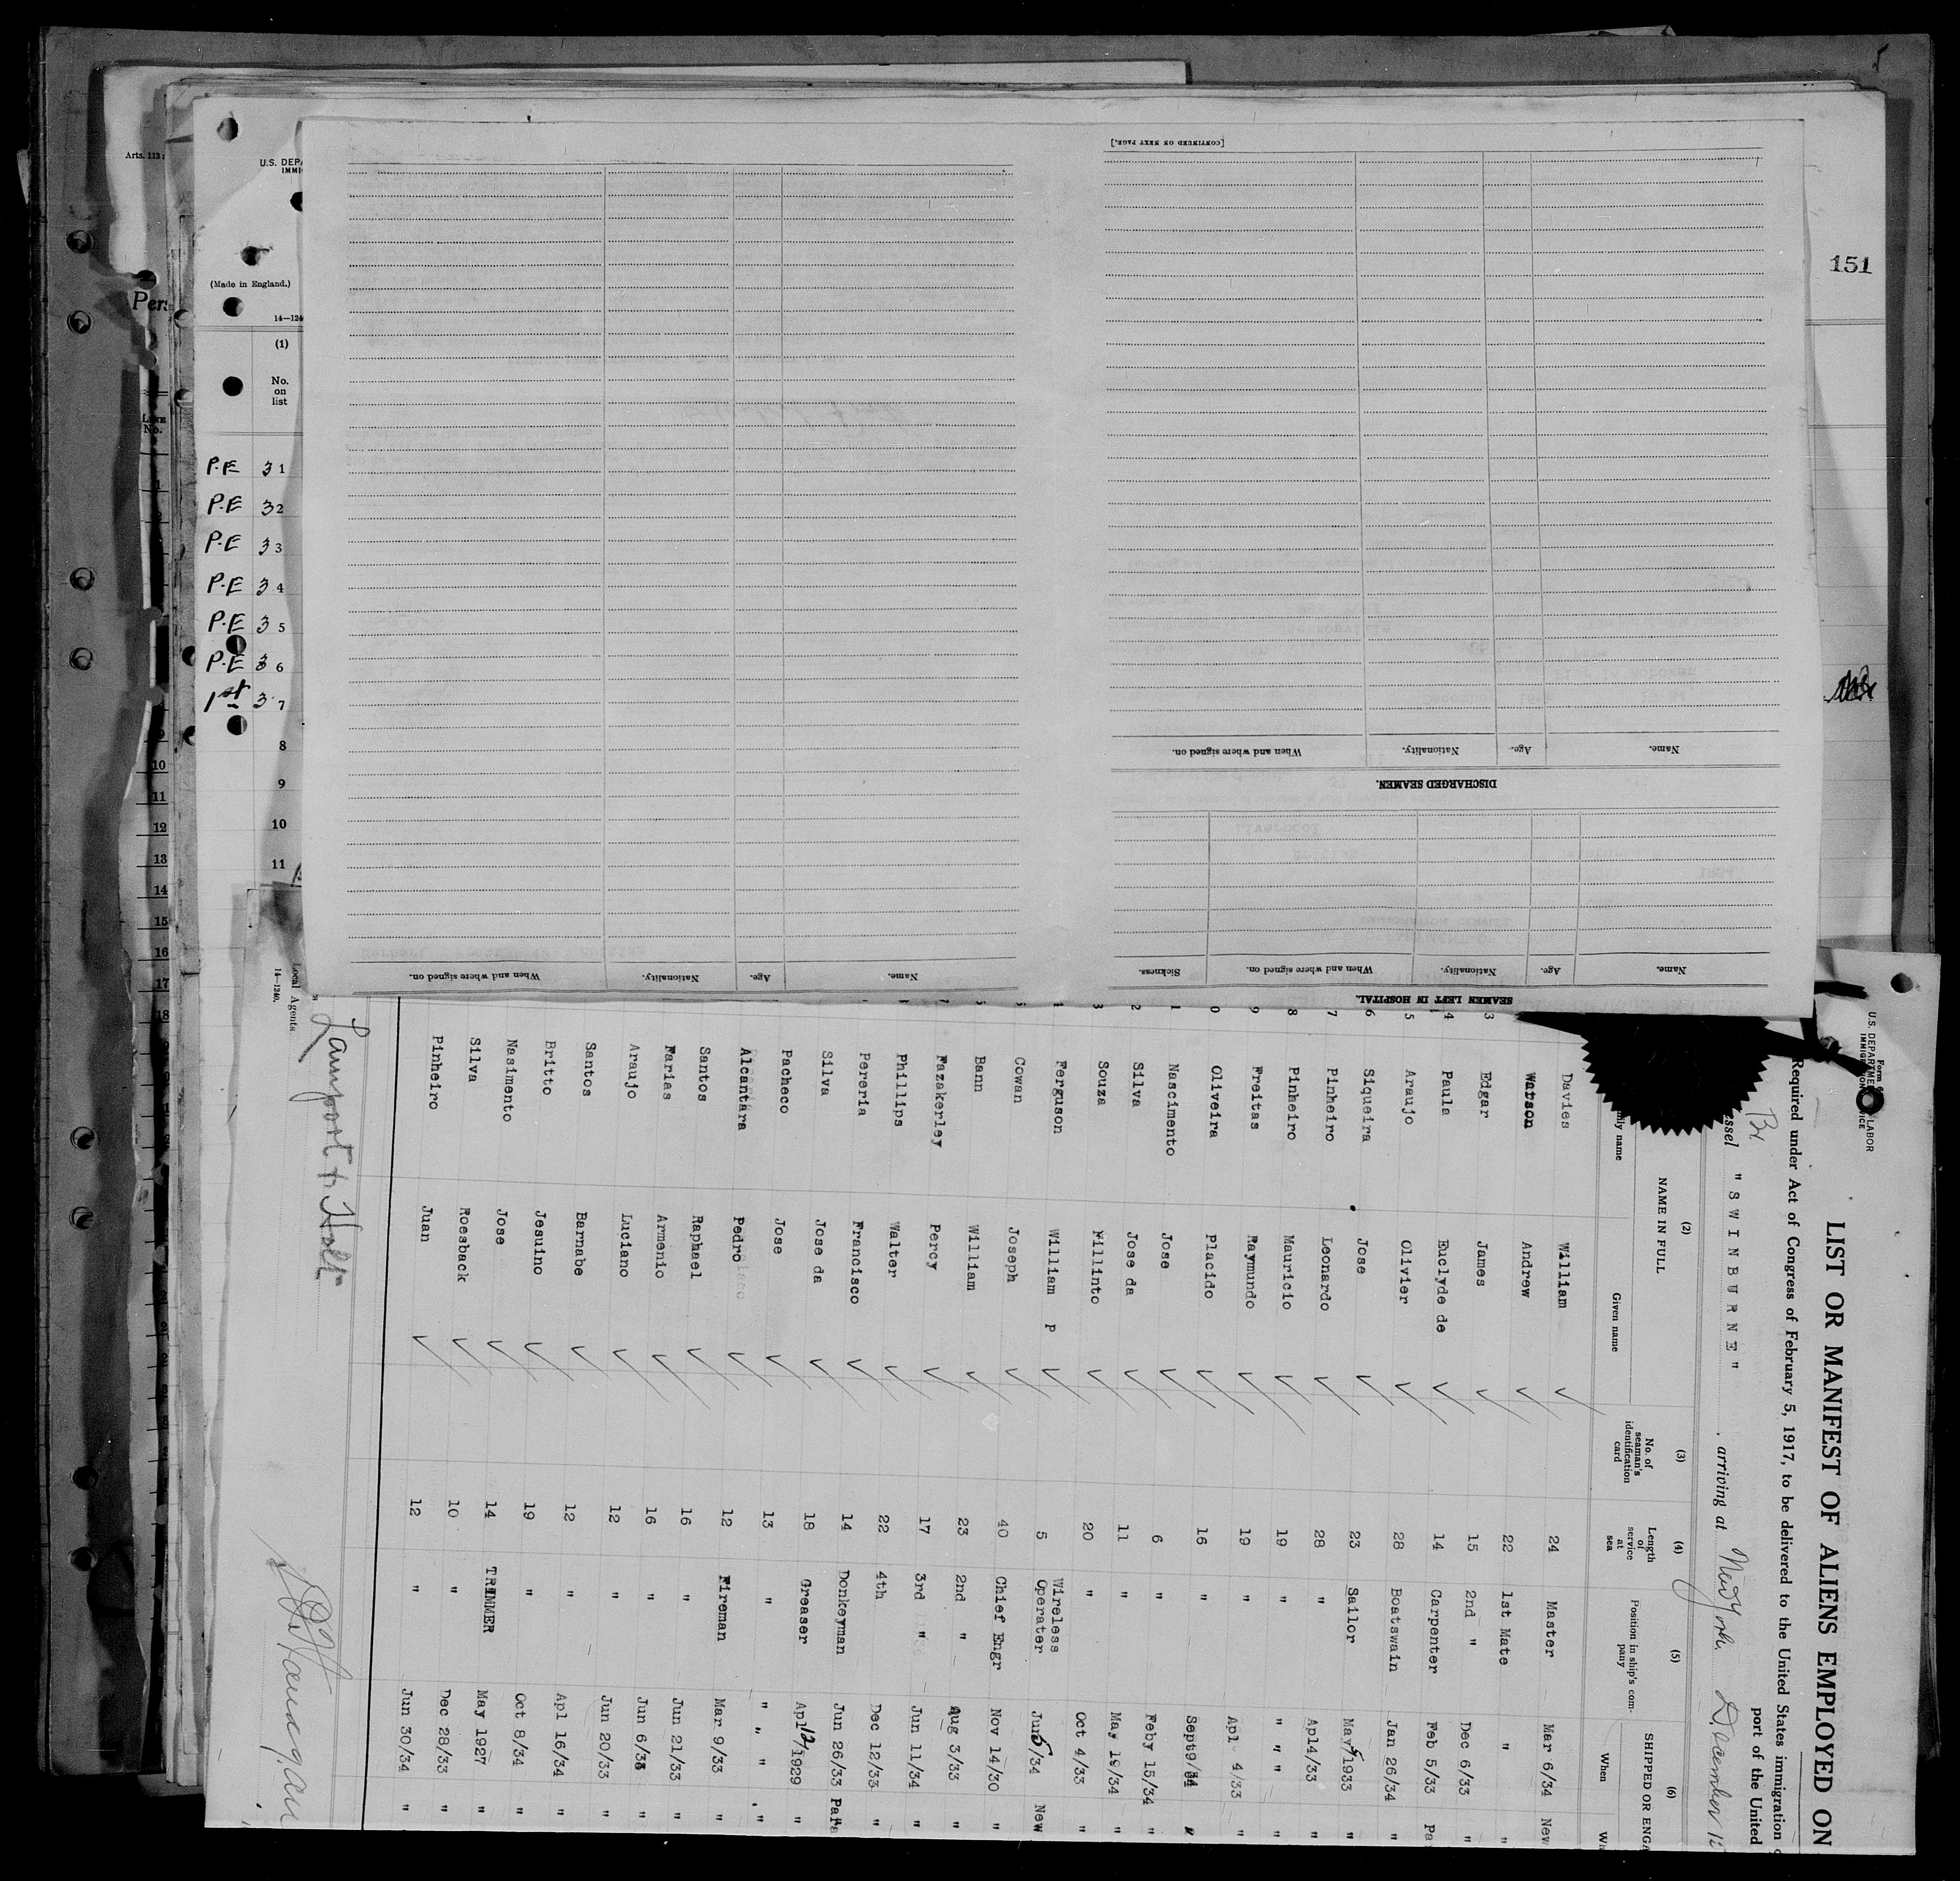 151
Arts. 113
U.S. DEPA
IMMI
(Made in England.)
14—124
Pers
(1)
No.
on
list
Line
No.
P.E 3 1
P.E 3 2
P.E 3 3
P.E 3 4
P.E 3 5
P.E 3 6
1st 3 7
8
9
10
11
1
9
10
11
12
13
14
15
16
17
18
[CONTINUED ON NEXT PAGE.]
Name. Age. Nationality. When and where signed on.
DISCHARGED SEAMEN.
Name. Age. Nationality. When and where signed on. Sickness.
SEAMEN LEFT IN HOSPITAL.
Name. Age. Nationality. When and where signed on.
Form
U.S. DEPARTMENT LABOR
IMMIGRATION VICE
LIST OR MANIFEST OF ALIENS EMPLOYED ON
Required under Act of Congress of February 5, 1917, to be delivered to the United States immigration
port of the United
Br
ssel "SWINBURNE" , arriving at New York December 12
(2) (3) (4) (5) (6)
NAME IN FULL
Family name Given name
No. of seaman's identification card
Length of service at sea
Position in ship's company
SHIPPED OR ENGA
When W
Davies William 24 Master Mar 6/34 New
Watson Andrew 22 1st Mate " "
3 Edgar James 15 2nd " Dec 6/33 "
4 Paula Euclyde de 14 Carpenter Feb 5/33 Pa
5 Araujo Olivier 28 Boatswain Jan 26/34 "
6 Siqueira Jose 23 Sailor May 5 1933 "
7 Pinheiro Leonardo 28 " Apl4/33 "
8 Pinheiro Mauricio 19 " " " " "
9 Freitas Raymundo 19 " Apl 4/33 "
0 Oliveira Placido 16 " Sept9/34 "
1 Nascimento Jose 6 " Feby 15/34 "
2 Silva Jose da 11 " May 19/34 "
3 Souza Fillinto 20 " Oct 4/33 "
Ferguson William P 5 Wireless Operater Jun 5/34 New
Cowan Joseph 40 Chief Engr Nov 14/30 "
Bann William 23 2nd " Aug 3/33 "
Fazakerley Percy 17 3rd " Jun 11/34 "
Phillips Walter 22 4th Dec 12/33 "
Pereria Francisco 14 Donkeyman Jun 26/33 Para
Silva Jose da 18 Greaser Apl 12/1929 "
Pacheco Jose 13 " " " " "
Alcantara Pedro 12 Fireman Mar 9/33 "
Santos Raphael 16 " Jun 21/33 "
Farias Armenio 16 " Jun 6/33 "
Araujo Luciano 12 " Jun 20/33 "
Santos Barnabe 12 " Apl 16/34 "
Britto Jesuino 19 " Oct 8/34 "
Nasimento Jose 14 TRIMMER May 1927 "
Silva Roesback 10 " Dec 28/33 "
Pinheiro Juan 12 " Jun 30/34 "
Lamport & Holt
Local Agents
14—1240.